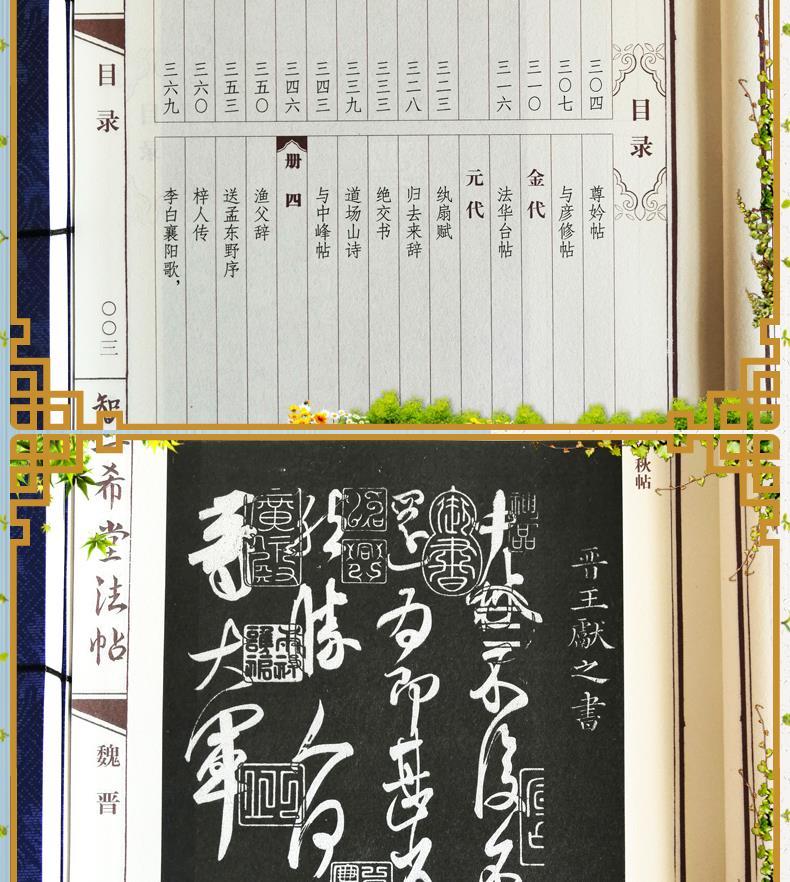 目录
三〇四
三〇七
三一〇
三一六
三二三
三二八
三三三
三三九
三四三
三四六
三五〇
三五三
三六〇
三六九
尊妗帖
与彦修帖
金代
法华台帖
元代
纨扇赋
归去来辞
绝交书
道场山诗
与中峰帖
册四
渔父辞
送孟东野序
梓人传
李白襄阳歌，
目录
〇〇三
秋帖
晋王獻之書
中秋不復不
還为即甚省
然勝人何
等大軍
神品
御書
希堂法帖
魏晋